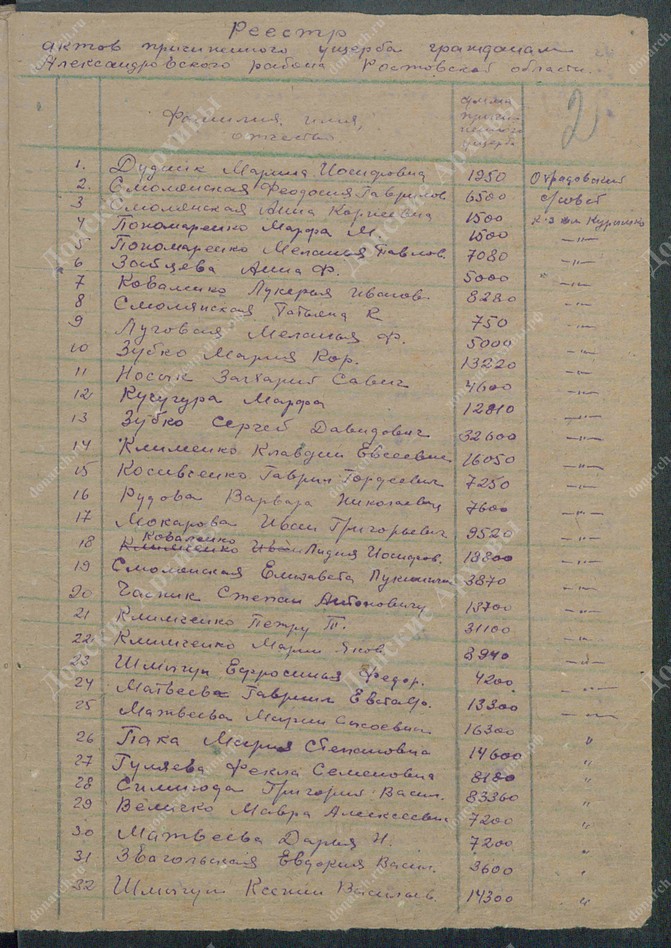 Реестр
актов причиненного ущерба гражданам
Александровского района Ростовской области.
Фамилия, имя, отчество
сумма причиненного ущерба
2
1. Дудник Марина Иосифовна 1250 Отрадовский
2. Смолянская Феодосия Гаврилов 6500 с/совет
3 Смолянская Анна Корнеевна 1500
4 Пономаренко Марфа М. 1500 -"-
5 Пономаренко Меланья Павлов. 7080 -"-
6 Анна Ф. 5000 -"-
7 Коваленко Лукерья Иванов. 8280 -"-
8 Смолянская Татьяна К 750 -"-
9 Луговая Меланья Ф. 5000 -"-
10 Зубко Мария Кор. 13220 -"-
11 Носык Захарий Савич 4600 -"-
12 Кучугура Марфа 12810 -"-
13 Зубко Сергей Давидович 32600 -"-
14 Клименко Клавдия Евсеевна 26050 -"-
15 Гаврил Гордеевич 7250 -"-
16 Рудова Варвара Николаевна 7600 -"-
17 Мокарова Иван Григорьевич 9520 -"-
18 Коваленко Лидия Иосифов. 18800 -"-
19 Смолянская Елизавета 3870 -"-
20 Часник Степан Антоновичу 18700 -"-
21 Климченко Петру Т. 31100 -"-
22 Климченко Марии Яков 8940 -"-
23 Шмыгун Ефросинья Федор. 4200 -"-
24 Матвеева Гавриил Евстаф. 13300 -"-
25 Матвеева Марии 16300 -"-
26 Пака Мария Степановна 14600 "
27 Гуляева Фекла Семеновна 8180 "
28 Григорий Васил. 83360 "
29 Величко Мавра Алексеевна 7200 "
30 Матвеева Дария Н. 7200 "
31 Звагольская Евдокия Васил. 3600 "
32 Шмыгун Ксении Васильев. 14300 "